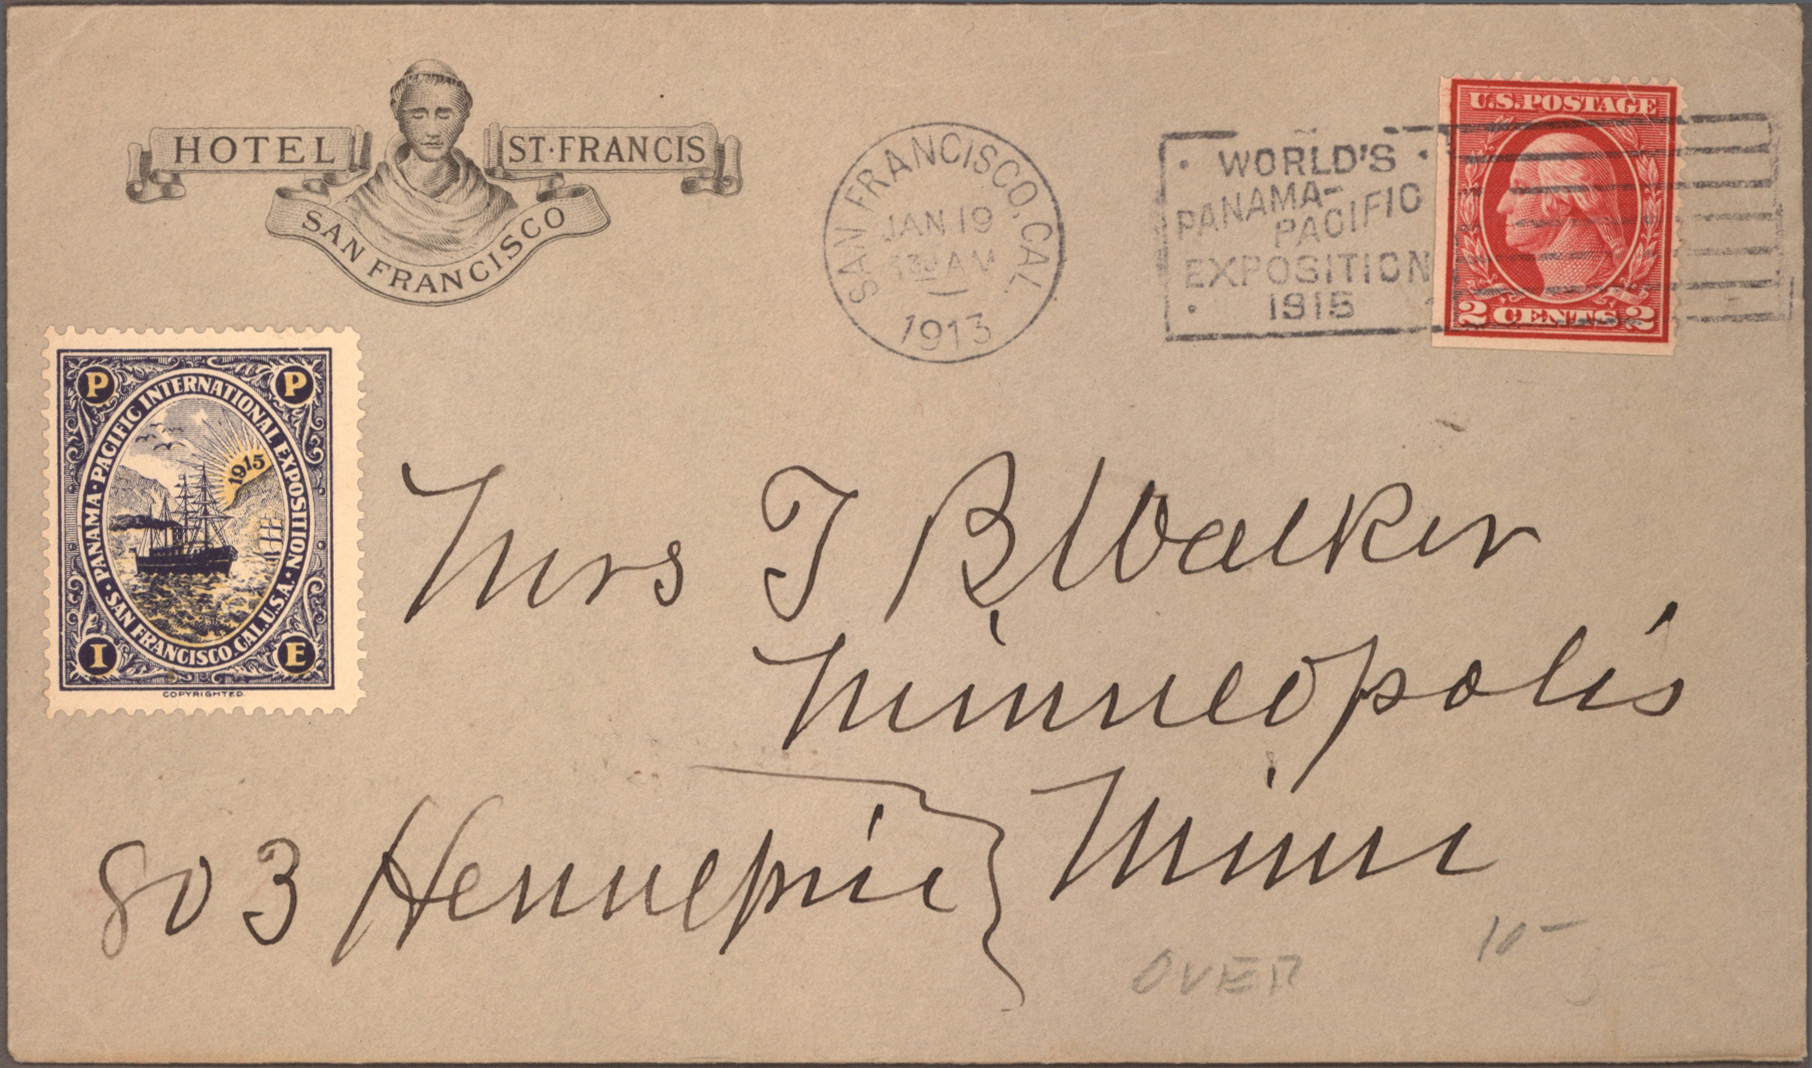 HOTEL ST·FRANCIS
SAN FRANCISCO
SAN FRANCISCO, CAL.
JAN 19
30 AM
1913
WORLD'S
PANAMA-
PACIFIC
EXPOSITION
1915
U.S. POSTAGE
2 CENTS 2
P P
PANAMA-PACIFIC INTERNATIONAL EXPOSITION
1915
SAN FRANCISCO. CAL. U.S.A.
I E
COPYRIGHTED.
Mrs T B Walker
Minneopolis
803 Hennepin
Minn
10-
OVER